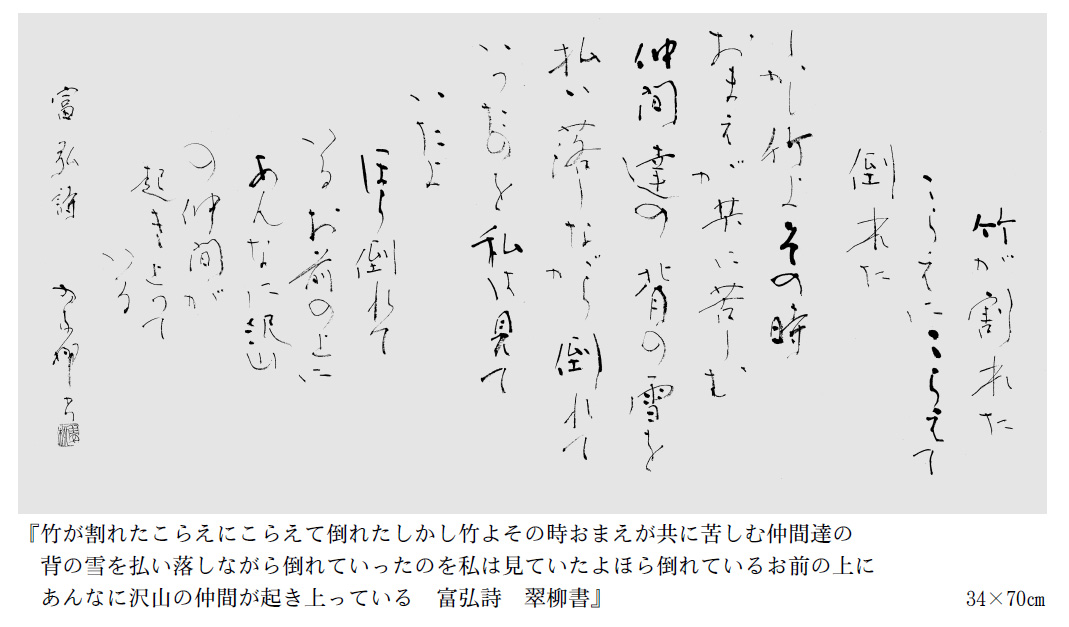 竹が割れた
こらえにこらえて
倒れた
しかし竹よその時
おまえが共に苦しむ
仲間達の背の雪を
払い落しながら倒れて
いったのを私は見て
いたよ
ほら倒れて
いるお前の上に
あんなに沢山
の仲間が
起き上って
いる
富弘詩 翠柳書
『竹が割れたこらえにこらえて倒れたしかし竹よその時おまえが共に苦しむ仲間達の
背の雪を払い落しながら倒れていったのを私は見ていたよほら倒れているお前の上に
あんなに沢山の仲間が起き上っている 富弘詩 翠柳書』
34×70㎝